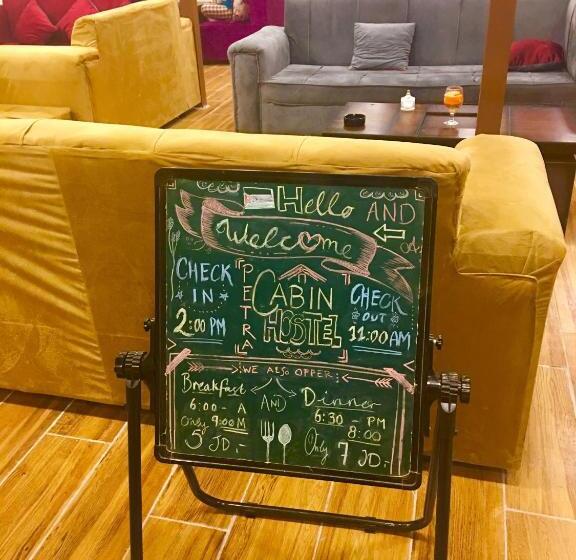 Hello AND
Welcome
CHECK IN 2:00 PM
PETRA
CABIN HOSTEL
CHECK OUT 11:00 AM
WE ALSO OFFER:
Breakfast AND Dinner
6:00 - A
9:00 M
Only 5 JD,-
6:30 - PM
8:00
Only 7 JD,-